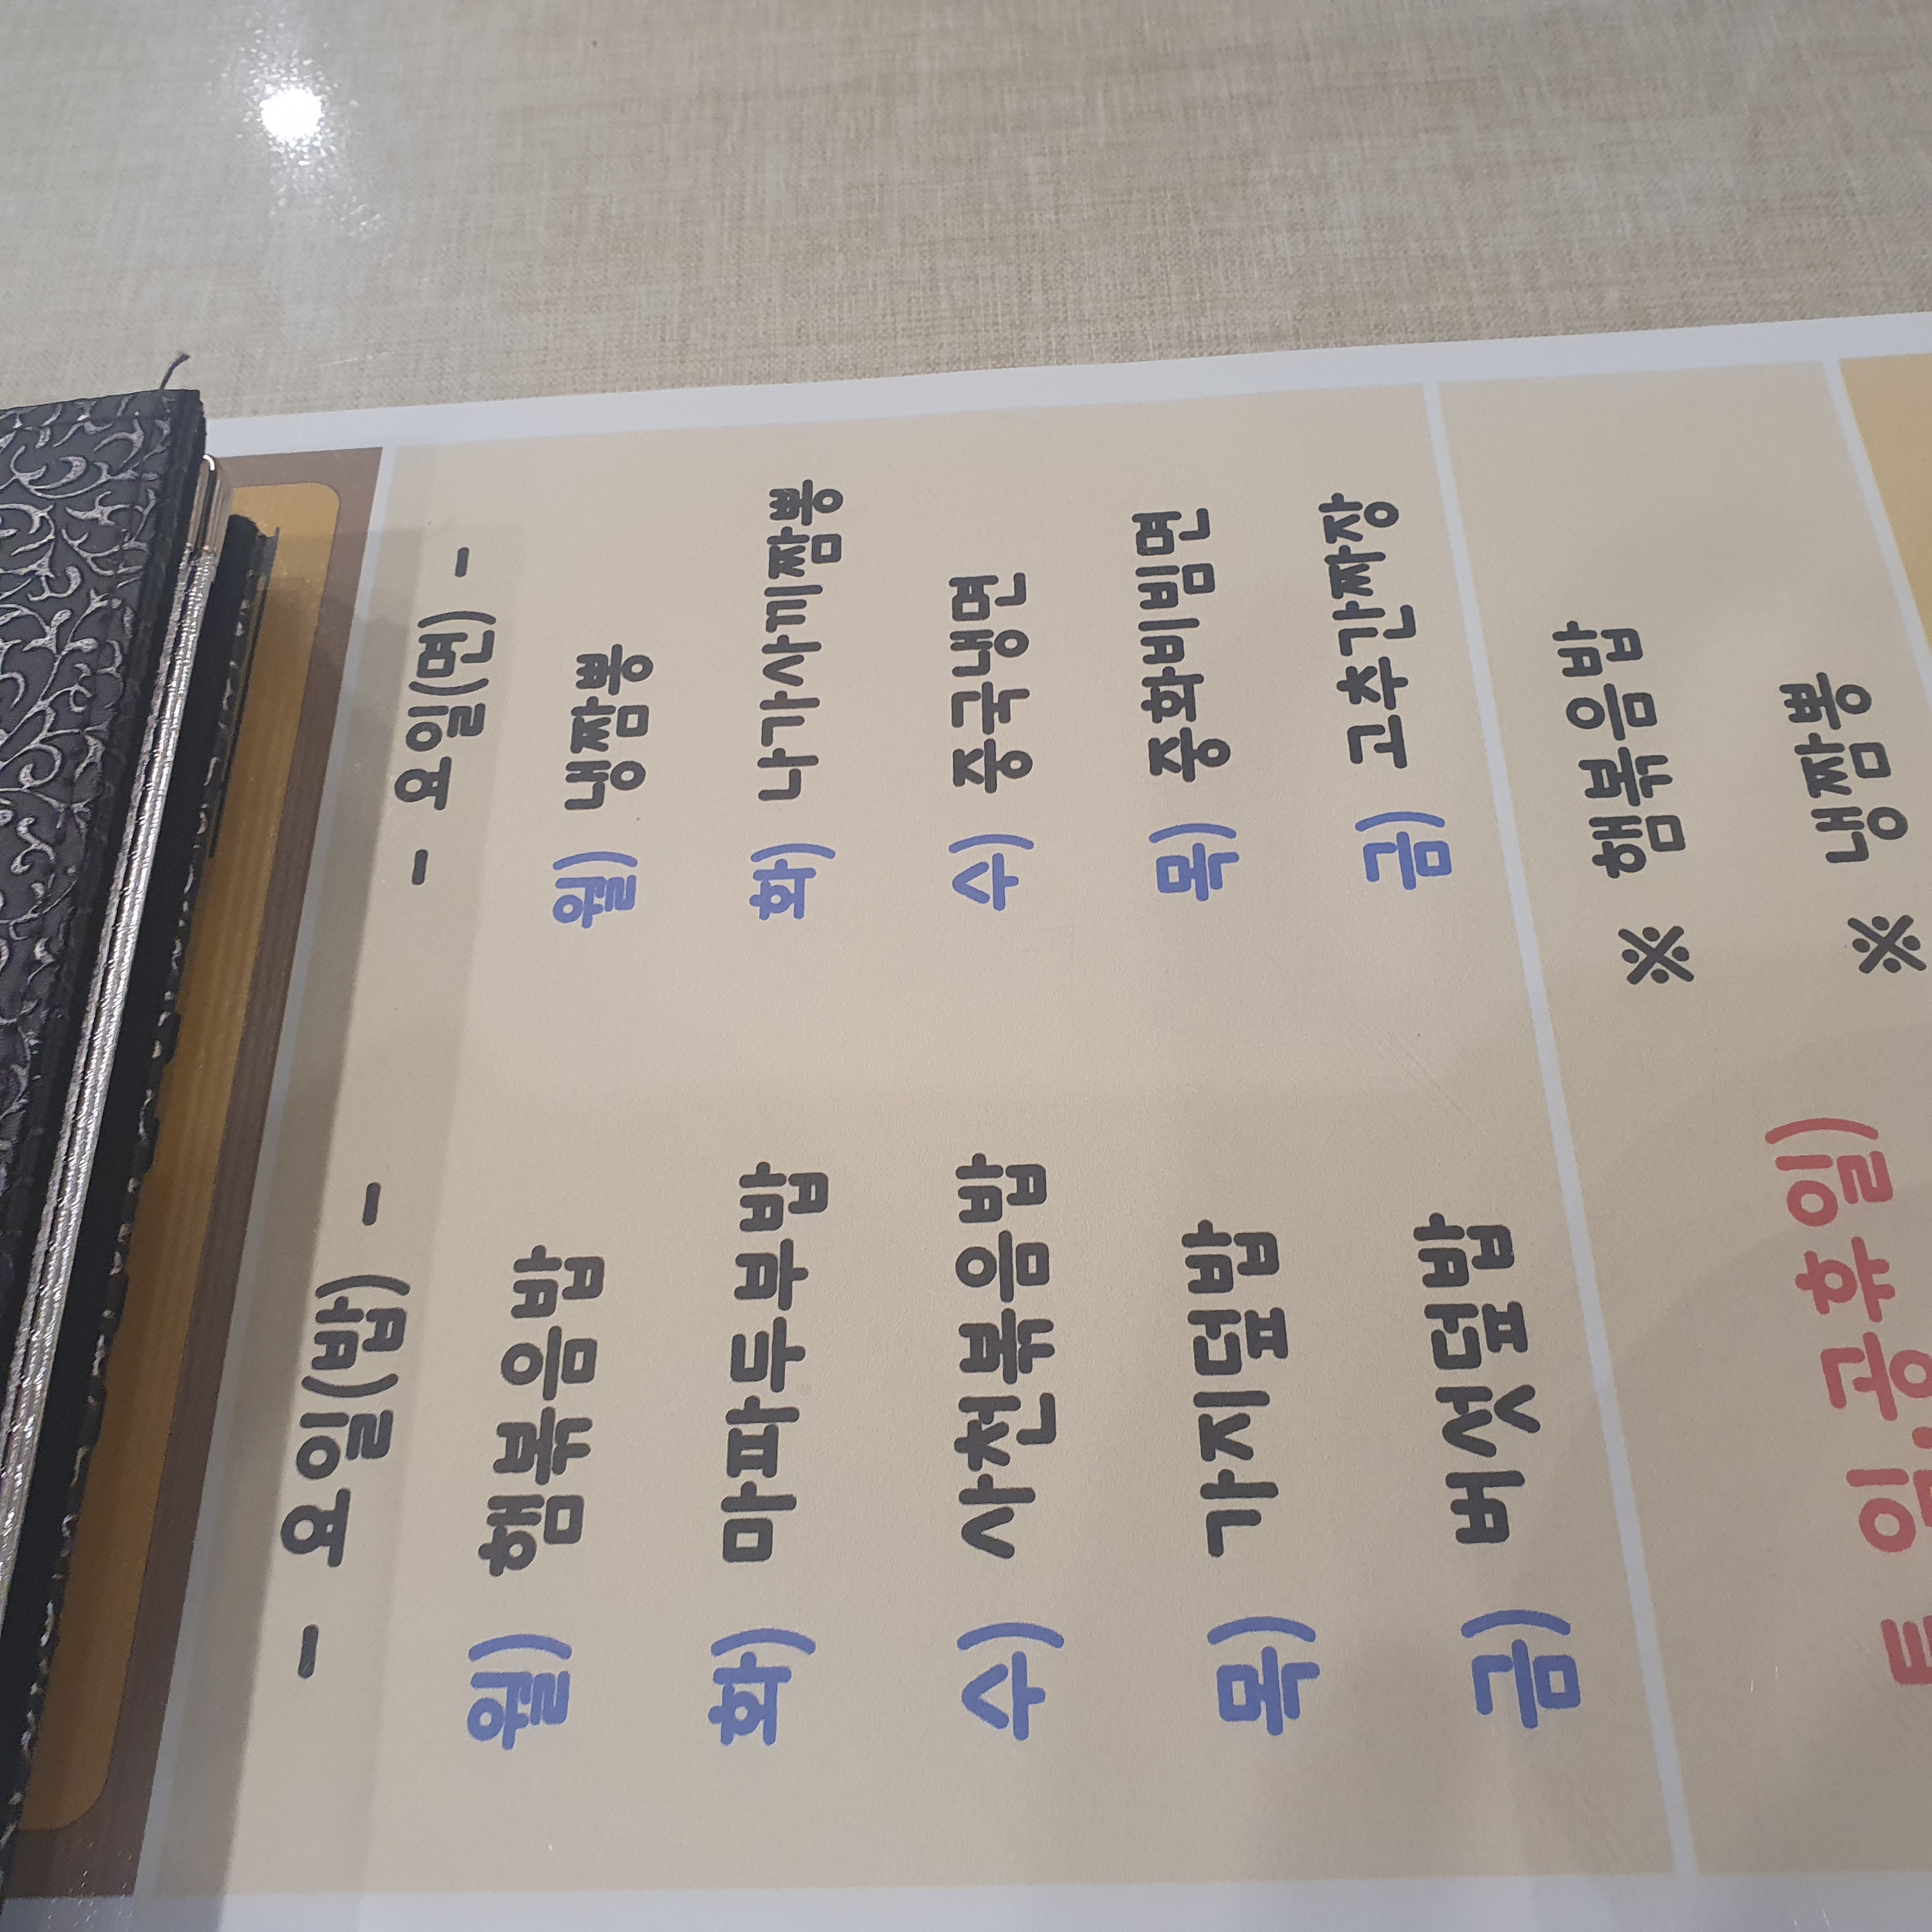 - 요일(밥) -
월) 햄볶음밥
화) 마파두부밥
수) 사천볶음밥
목) 가지덮밥
금) 버섯덮밥
- 요일(면) -
월) 냉짬뽕
화) 나가사끼짬뽕
수) 중국냉면
목) 중화비빔면
금) 고추간짜장
토.일.공휴일)
※ 햄볶음밥
※ 냉짬뽕